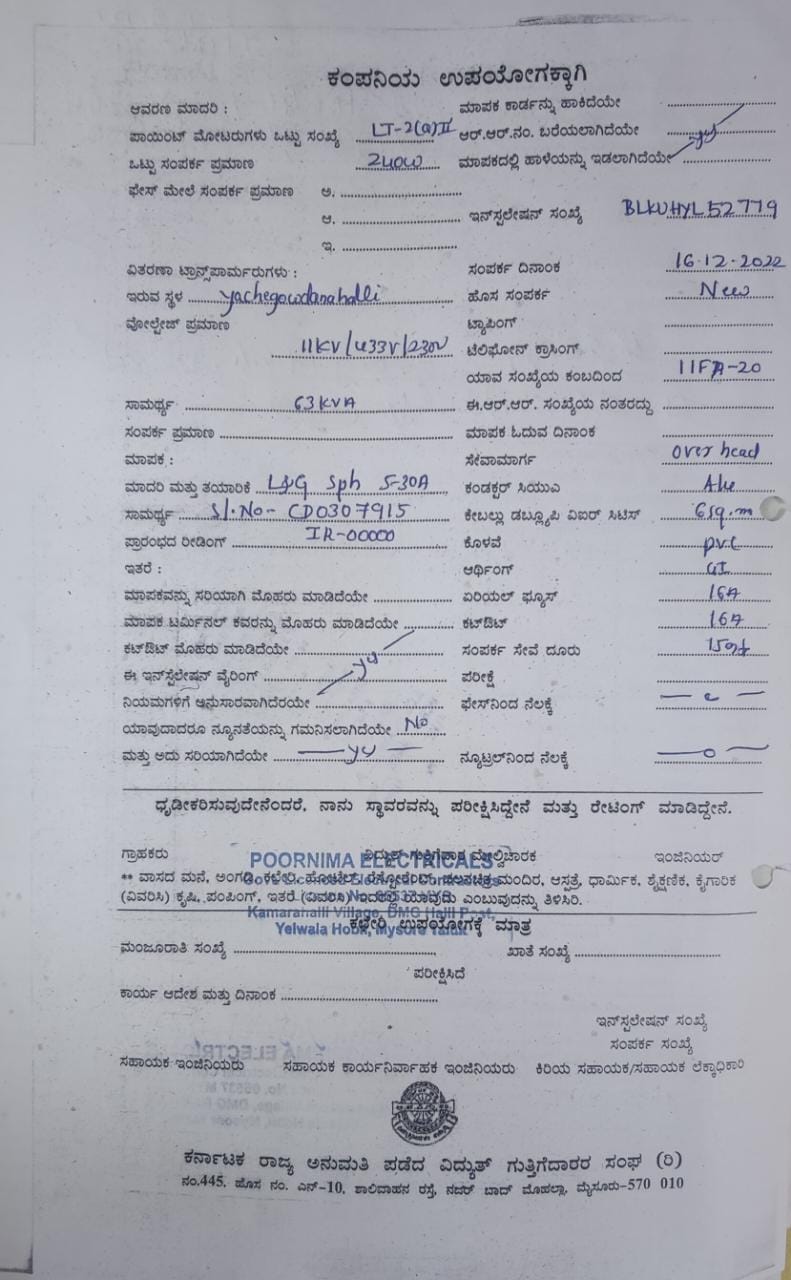 ಕಂಪನಿಯ ಉಪಯೋಗಕ್ಕಾಗಿ
ಆವರಣ ಮಾದರಿ : ಮಾಪಕ ಕಾರ್ಡನ್ನು ಹಾಕಿದೆಯೇ
ಪಾಯಿಂಟ್ ಮೋಟರುಗಳು ಒಟ್ಟು ಸಂಖ್ಯೆ LT-2(a)II ಆರ್.ಆರ್.ನಂ. ಬರೆಯಲಾಗಿದೆಯೇ
ಒಟ್ಟು ಸಂಪರ್ಕ ಪ್ರಮಾಣ 240W ಮಾಪಕದಲ್ಲಿ ಹಾಳೆಯನ್ನು ಇಡಲಾಗಿದೆಯೇ
ಫೇಸ್ ಮೇಲೆ ಸಂಪರ್ಕ ಪ್ರಮಾಣ ಅ.
ಆ. ಇನ್‌ಸ್ಟಲೇಷನ್ ಸಂಖ್ಯೆ BLKUHYL52779
ಇ.
ವಿತರಣಾ ಟ್ರಾನ್ಸ್‌ಪಾರ್ಮರುಗಳು : ಸಂಪರ್ಕ ದಿನಾಂಕ 16-12-2022
ಇರುವ ಸ್ಥಳ Yachegowdanahalli ಹೊಸ ಸಂಪರ್ಕ New
ವೋಲ್ಟೇಜ್ ಪ್ರಮಾಣ ಟ್ಯಾಪಿಂಗ್
11KV/433V/230V ಟೆಲಿಫೋನ್ ಕ್ರಾಸಿಂಗ್
ಯಾವ ಸಂಖ್ಯೆಯ ಕಂಬದಿಂದ 11FA-20
ಸಾಮರ್ಥ್ಯ 63KVA ಈ.ಆರ್.ಆರ್. ಸಂಖ್ಯೆಯ ನಂತರದ್ದು
ಸಂಪರ್ಕ ಪ್ರಮಾಣ ಮಾಪಕ ಓದುವ ದಿನಾಂಕ
ಮಾಪಕ : ಸೇವಾಮಾರ್ಗ over head
ಮಾದರಿ ಮತ್ತು ತಯಾರಿಕೆ L&G Sph 5-30A ಕಂಡಕ್ಟರ್ ಸಿಯುಎ
ಸಾಮರ್ಥ್ಯ Sl.No- CD0307915 ಕೇಬಲ್ಲು ಡಬ್ಲ್ಯೂಪಿ ವಿಐರ್ ಸಿಟಿಸ್ 6sq.m
ಪ್ರಾರಂಭದ ರೀಡಿಂಗ್ IR-00000 ಕೊಳವೆ pvc
ಇತರೆ : ಆರ್ಥಿಂಗ್ GI
ಮಾಪಕವನ್ನು ಸರಿಯಾಗಿ ಮೊಹರು ಮಾಡಿದೆಯೇ ಏರಿಯಲ್ ಫ್ಯೂಸ್ 16A
ಮಾಪಕ ಟರ್ಮಿನಲ್ ಕವರನ್ನು ಮೊಹರು ಮಾಡಿದೆಯೇ ಕಟ್‌ಔಟ್ 16A
ಕಟ್‌ಔಟ್ ಮೊಹರು ಮಾಡಿದೆಯೇ ಸಂಪರ್ಕ ಸೇವೆ ದೂರು
ಈ ಇನ್‌ಸ್ಟೆಲೇಷನ್ ವೈರಿಂಗ್ ಪರೀಕ್ಷೆ
ನಿಯಮಗಳಿಗೆ ಅನುಸಾರವಾಗಿದೆರಯೇ ಫೇಸ್‌ನಿಂದ ನೆಲಕ್ಕೆ
ಯಾವುದಾದರೂ ನ್ಯೂನತೆಯನ್ನು ಗಮನಿಸಲಾಗಿದೆಯೇ No
ಮತ್ತು ಅದು ಸರಿಯಾಗಿದೆಯೇ ನ್ಯೂಟ್ರಲ್‌ನಿಂದ ನೆಲಕ್ಕೆ — 0 —
ಧೃಡೀಕರಿಸುವುದೇನೆಂದರೆ, ನಾನು ಸ್ಥಾವರವನ್ನು ಪರೀಕ್ಷಿಸಿದ್ದೇನೆ ಮತ್ತು ರೇಟಿಂಗ್ ಮಾಡಿದ್ದೇನೆ.
ಗ್ರಾಹಕರು ವಿದ್ಯುತ್ ಗುತ್ತಿಗೆದಾರ ಮೇಲ್ವಿಚಾರಕ ಇಂಜಿನಿಯರ್
POORNIMA ELECTRICALS
** ವಾಸದ ಮನೆ, ಅಂಗಡಿ, ಕಛೇರಿ, ಹೋಟೆಲ್, ರೆಸ್ಟೋರೆಂಟ್, ಚಲನಚಿತ್ರ ಮಂದಿರ, ಆಸ್ಪತ್ರೆ, ಧಾರ್ಮಿಕ, ಶೈಕ್ಷಣಿಕ, ಕೈಗಾರಿಕ
(ವಿವರಿಸಿ) ಕೃಷಿ, ಪಂಪಿಂಗ್, ಇತರೆ (ವಿವರಿಸಿ) ಇದರಲ್ಲಿ ಯಾವುದು ಎಂಬುವುದನ್ನು ತಿಳಿಸಿರಿ.
Kamarahalli Village, DMG Halli Post,
Yelwala Hobli, Mysore Taluk
ಕಛೇರಿ ಉಪಯೋಗಕ್ಕೆ ಮಾತ್ರ
ಮಂಜೂರಾತಿ ಸಂಖ್ಯೆ ಖಾತೆ ಸಂಖ್ಯೆ
ಪರೀಕ್ಷಿಸಿದೆ
ಕಾರ್ಯ ಆದೇಶ ಮತ್ತು ದಿನಾಂಕ
ಇನ್‌ಸ್ಟಲೇಷನ್ ಸಂಖ್ಯೆ
ಸಂಪರ್ಕ ಸಂಖ್ಯೆ
ಸಹಾಯಕ ಇಂಜಿನಿಯರು ಸಹಾಯಕ ಕಾರ್ಯನಿರ್ವಾಹಕ ಇಂಜಿನಿಯರು ಕಿರಿಯ ಸಹಾಯಕ/ಸಹಾಯಕ ಲೆಕ್ಕಾಧಿಕಾರಿ
ಕರ್ನಾಟಕ ರಾಜ್ಯ ಅನುಮತಿ ಪಡೆದ ವಿದ್ಯುತ್ ಗುತ್ತಿಗೆದಾರರ ಸಂಘ (ರಿ)
ನಂ.445, ಹೊಸ ನಂ. ಎನ್-10, ಶಾಲಿವಾಹನ ರಸ್ತೆ, ನಜರ್ ಬಾದ್ ಮೊಹಲ್ಲಾ, ಮೈಸೂರು-570 010